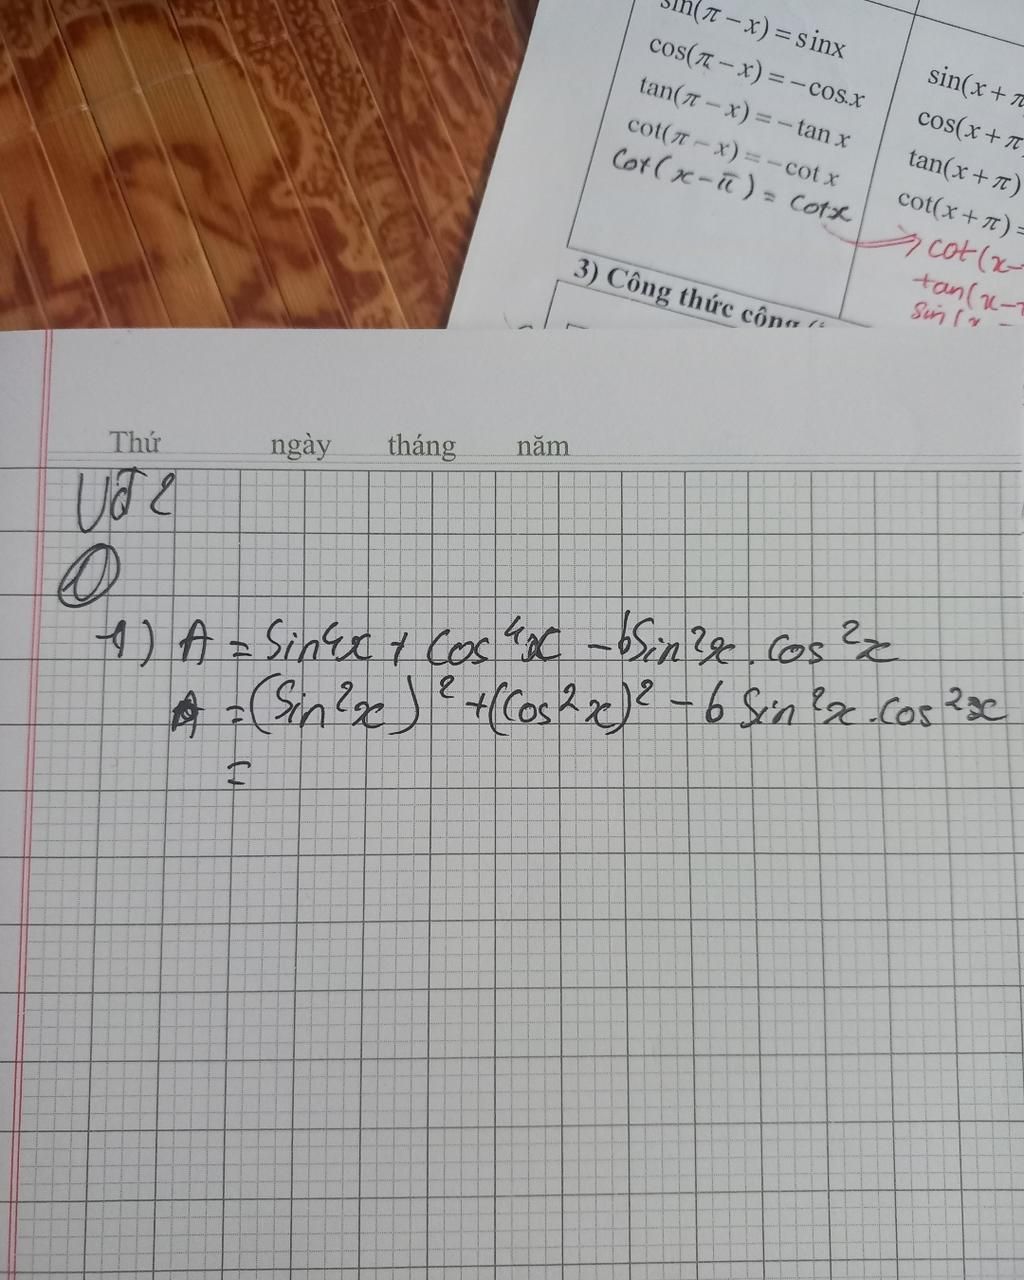 sin(π − x) = sinx
cos(π − x) = −cos.x
tan(π − x) = − tan x
cot(π − x) = −cot x
Cot(x − π) = Cotx
sin(x + π
cos(x + π
tan(x + π)
cot(x + π) =
cot(x −
tan(x −
sin(x −
3) Công thức cộng
Thứ ngày tháng năm
VD 2
①
1) A = Sin⁴x + Cos⁴x − 6Sin²x . Cos²x
A = (Sin²x)² + (Cos²x)² − 6 Sin²x . Cos²x
=